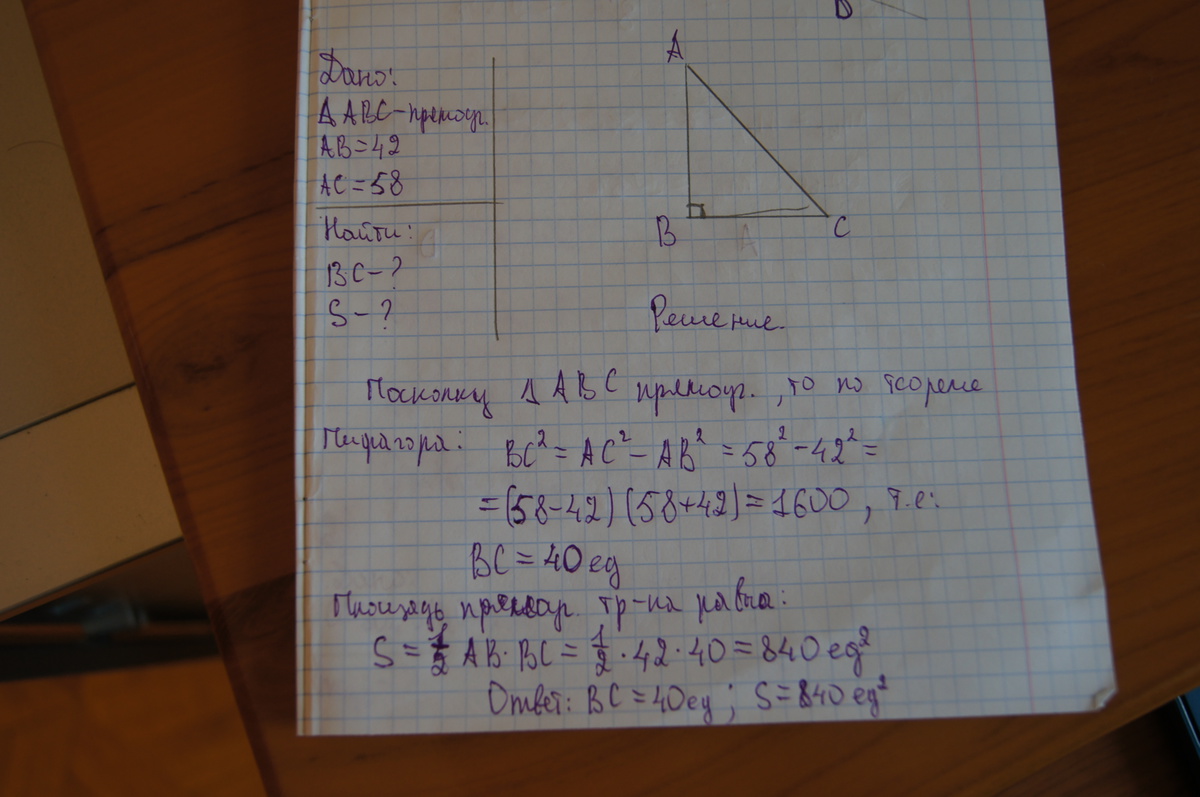 D
Дано:
Δ ABC - прямоуг.
AB = 42
AC = 58
Найти:
BC - ?
S - ?
A
B
C
Решение.
Посколку Δ ABC прямоуг., то по теореме
Пифагора: BC² = AC² - AB² = 58² - 42² =
= (58-42)(58+42) = 1600, т.е:
BC = 40 ед
Площадь прямоуг. тр-ка равна:
S = 1/2 AB · BC = 1/2 · 42 · 40 = 840 ед²
Ответ: BC = 40 ед ; S = 840 ед²